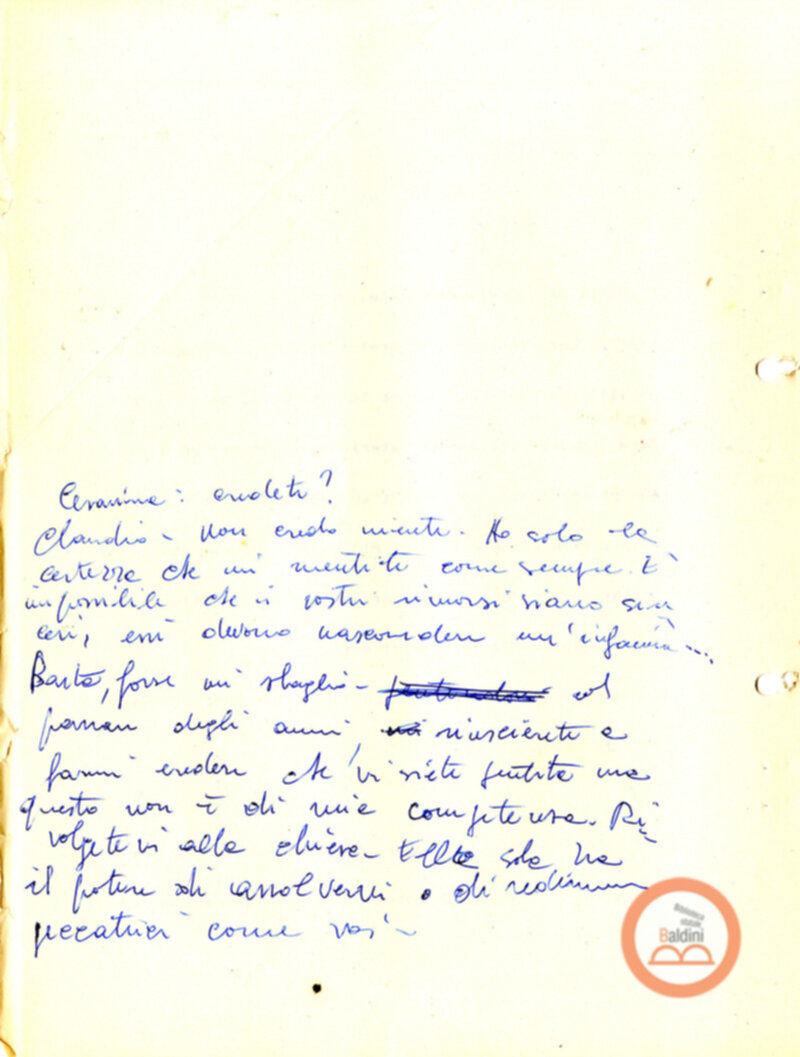 Cesarina: credete?
Claudio - Non credo niente. Ho solo la
certezza che mi mentite come sempre. È
impossibile che i vostri rimorsi siano sin
ceri, essi devono nascondere un'infamia...
Basta, forse mi sbaglio - col
passar degli anni, mi riuscirete a
farmi credere che vi siete pentita ma
questo non è di mia competenza. Ri=
volgetevi alla chiesa - Ella sola ha
il potere di assolvervi o di redimere
peccatrici come voi -
Biblioteca
statale
Baldini